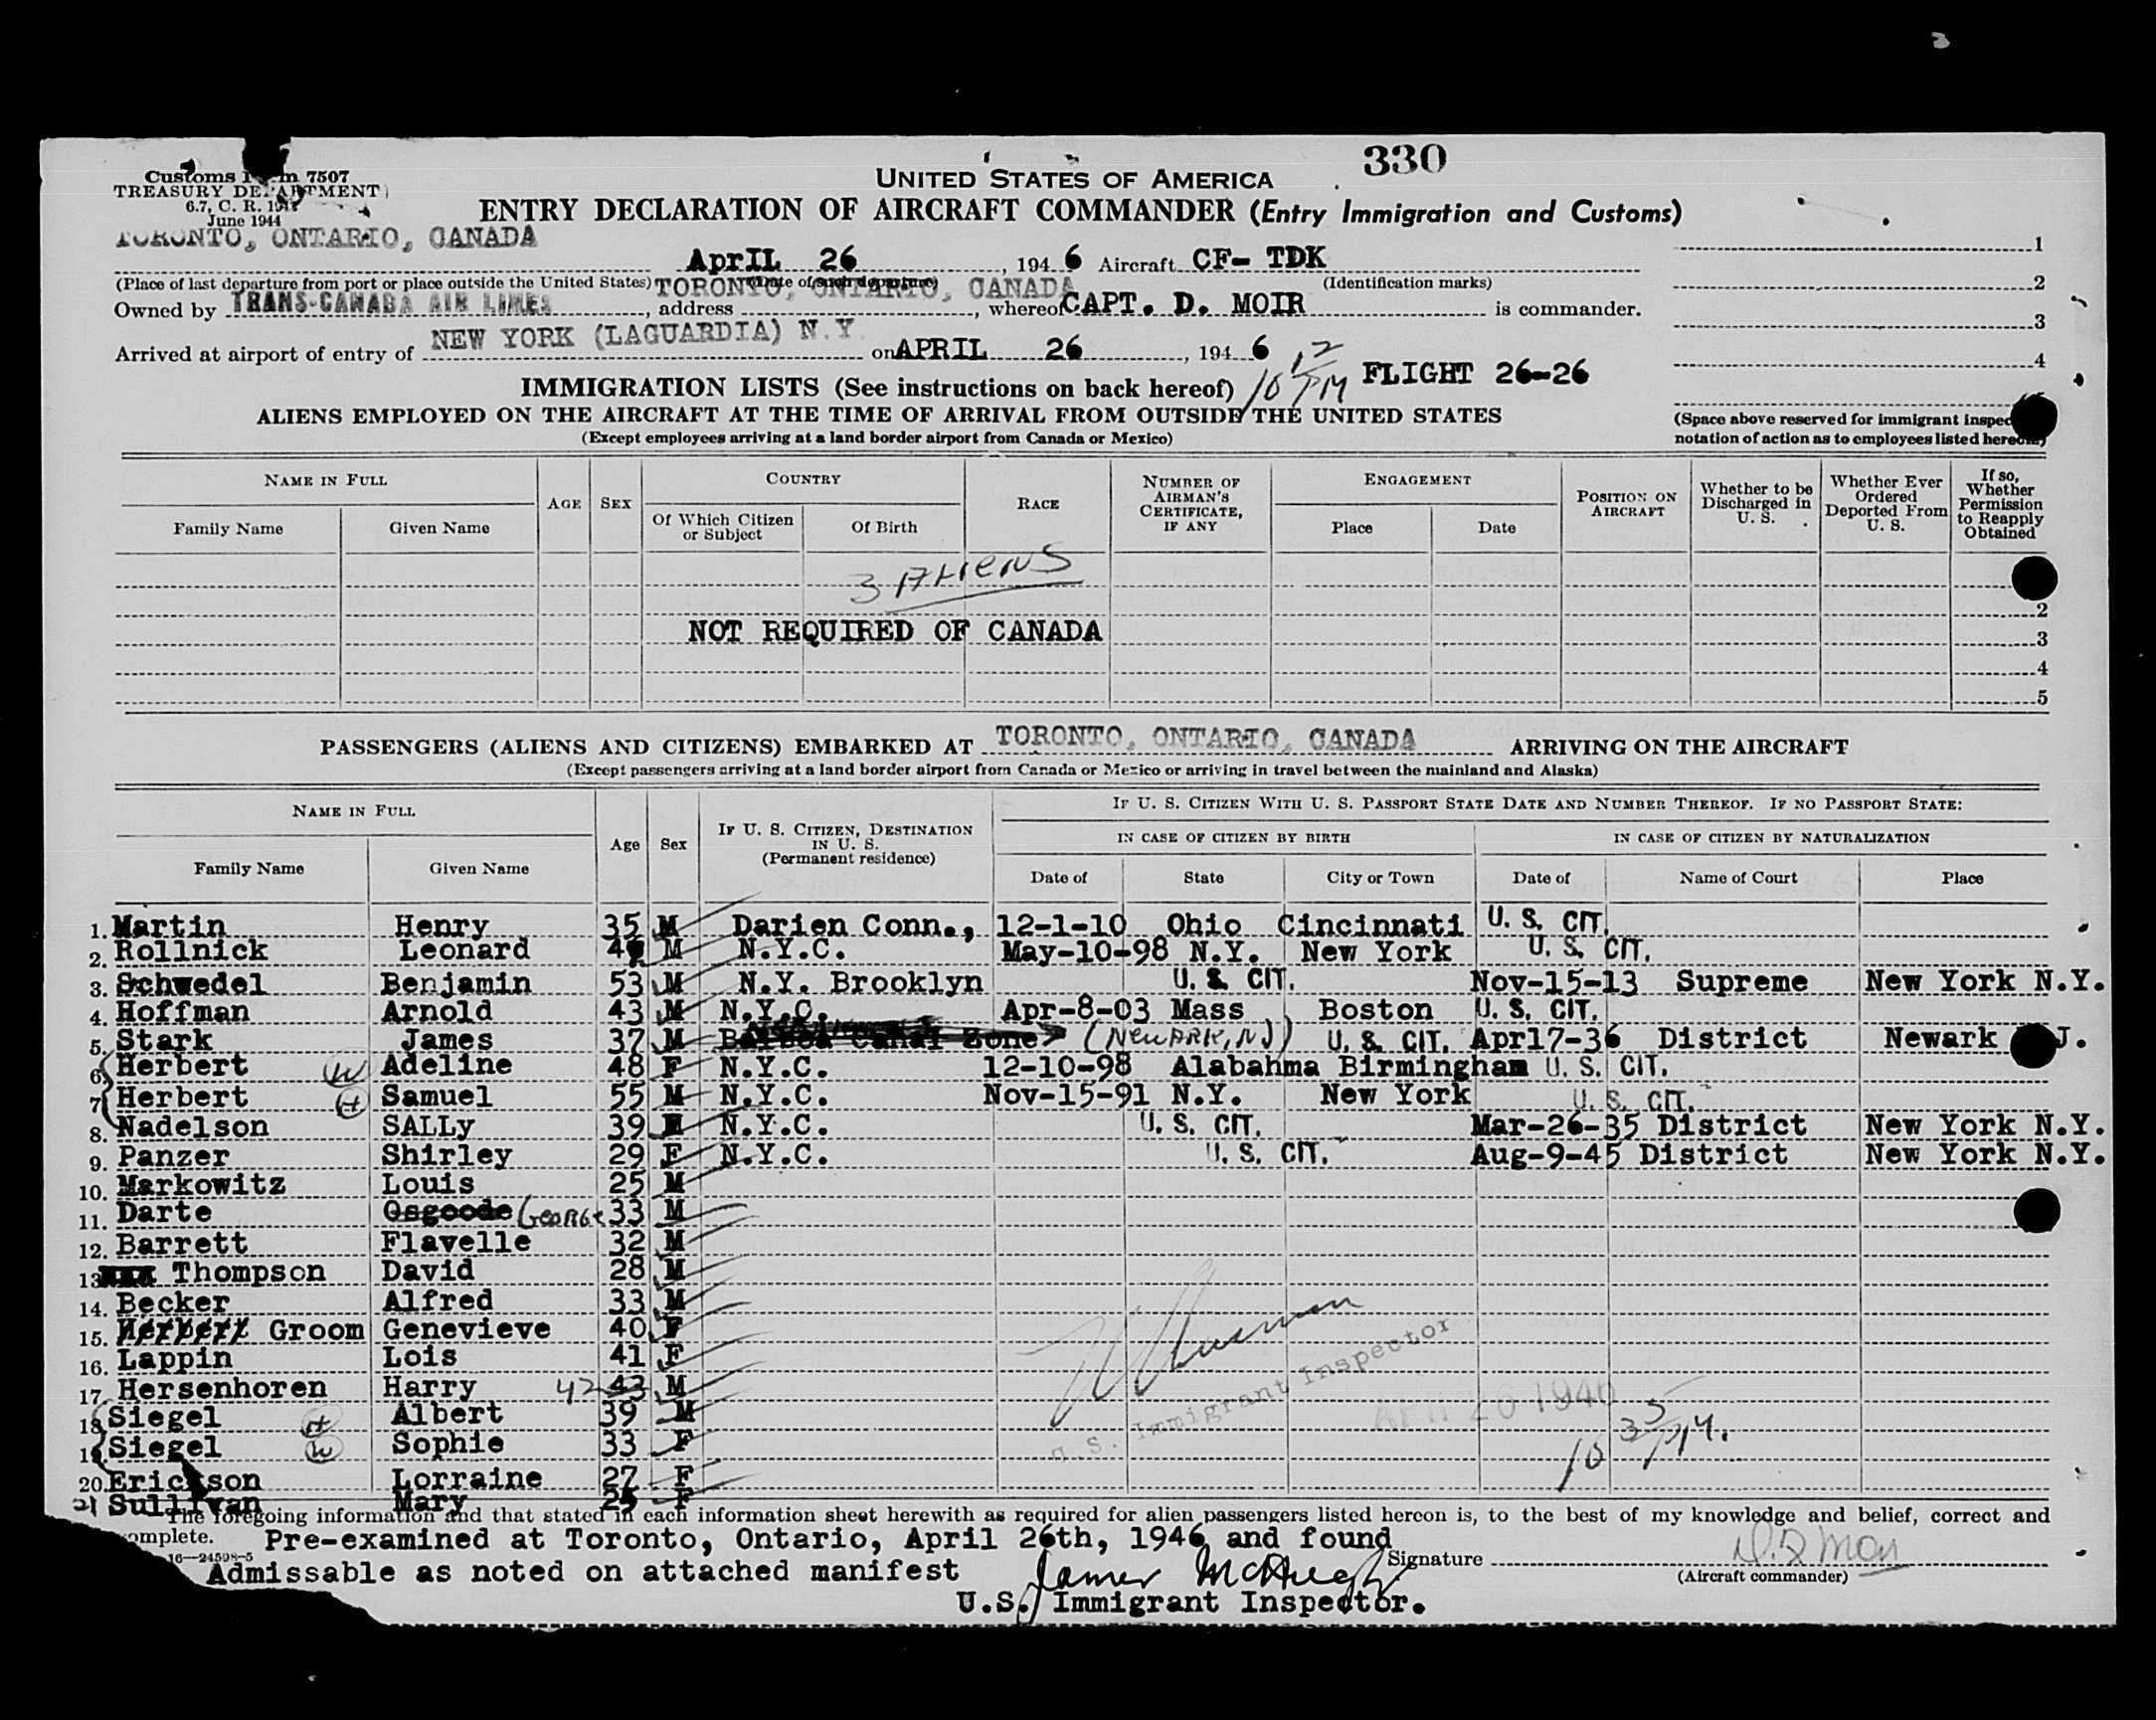 330
Customs Form 7507
TREASURY DEPARTMENT
6.7, C. R.
June 1944
UNITED STATES OF AMERICA
ENTRY DECLARATION OF AIRCRAFT COMMANDER (Entry Immigration and Customs)
TORONTO, ONTARIO, CANADA
AprIL 26, 1946 Aircraft CF- TDK
(Place of last departure from port or place outside the United States) (Date of such departure) (Identification marks)
Owned by TRANS-CANADA AIR LINES, address TORONTO, ONTARIO, CANADA, whereof CAPT. D. MOIR is commander.
Arrived at airport of entry of NEW YORK (LAGUARDIA) N.Y. on APRIL 26, 1946
10 12 PM FLIGHT 26-26
1
2
3
4
IMMIGRATION LISTS (See instructions on back hereof)
ALIENS EMPLOYED ON THE AIRCRAFT AT THE TIME OF ARRIVAL FROM OUTSIDE THE UNITED STATES
(Except employees arriving at a land border airport from Canada or Mexico)
(Space above reserved for immigrant inspec
notation of action as to employees listed hereon)
NAME IN FULL AGE SEX COUNTRY RACE NUMBER OF AIRMAN'S CERTIFICATE, IF ANY ENGAGEMENT POSITION ON AIRCRAFT Whether to be Discharged in U. S. Whether Ever Ordered Deported From U. S. If so, Whether Permission to Reapply Obtained
Family Name Given Name Of Which Citizen or Subject Of Birth Place Date
3 ALIENS
2
NOT REQUIRED OF CANADA 3
4
5
PASSENGERS (ALIENS AND CITIZENS) EMBARKED AT TORONTO, ONTARIO, CANADA ARRIVING ON THE AIRCRAFT
(Except passengers arriving at a land border airport from Canada or Mexico or arriving in travel between the mainland and Alaska)
NAME IN FULL Age Sex IF U. S. CITIZEN, DESTINATION IN U. S. (Permanent residence) IF U. S. CITIZEN WITH U. S. PASSPORT STATE DATE AND NUMBER THEREOF. IF NO PASSPORT STATE:
IN CASE OF CITIZEN BY BIRTH IN CASE OF CITIZEN BY NATURALIZATION
Family Name Given Name Date of State City or Town Date of Name of Court Place
1. Martin Henry 35 M Darien Conn., 12-1-10 Ohio Cincinnati U. S. CIT.
2. Rollnick Leonard M N.Y.C. May-10-98 N.Y. New York U. S. CIT.
3. Schwedel Benjamin 53 M N.Y. Brooklyn U. S. CIT. Nov-15-13 Supreme New York N.Y.
4. Hoffman Arnold 43 M N.Y.C. Apr-8-03 Mass Boston U. S. CIT.
5. Stark James 37 M Balboa Canal Zone (NewARK, NJ) U. S. CIT. Apr17-36 District Newark J.
6. Herbert W Adeline 48 F N.Y.C. 12-10-98 Alabahma Birmingham U. S. CIT.
7. Herbert H Samuel 55 M N.Y.C. Nov-15-91 N.Y. New York U. S. CIT.
8. Nadelson SALLy 39 N.Y.C. U. S. CIT. Mar-26-35 District New York N.Y.
9. Panzer Shirley 29 F N.Y.C. U. S. CIT. Aug-9-45 District New York N.Y.
10. Markowitz Louis 25 M
11. Darte Osgoode George 33 M
12. Barrett Flavelle 32 M
13. Thompson David 28 M
14. Becker Alfred 33 M
15. Herbert Groom Genevieve 40 F
16. Lappin Lois 41 F
17. Hersenhoren Harry 42 43 M
18. Siegel H Albert 39 M
19. Siegel W Sophie 33 F
20. Erickson Lorraine 27 F
21 Sullivan Mary F
U.S. Immigrant Inspector
1946
10 35 PM.
The foregoing information and that stated in each information sheet herewith as required for alien passengers listed hereon is, to the best of my knowledge and belief, correct and
complete. Pre-examined at Toronto, Ontario, April 26th, 1946 and found
16—24598-5 Admissable as noted on attached manifest
James McHugh
U.S. Immigrant Inspector.
Signature
(Aircraft commander)